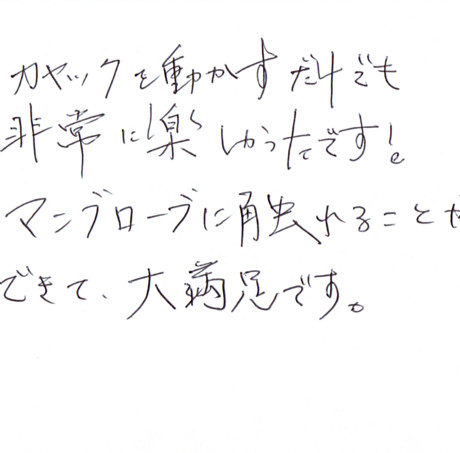 カヤックを動かすだけでも
非常に楽しかったです!
マングローブに触れることが
できて、大満足です。